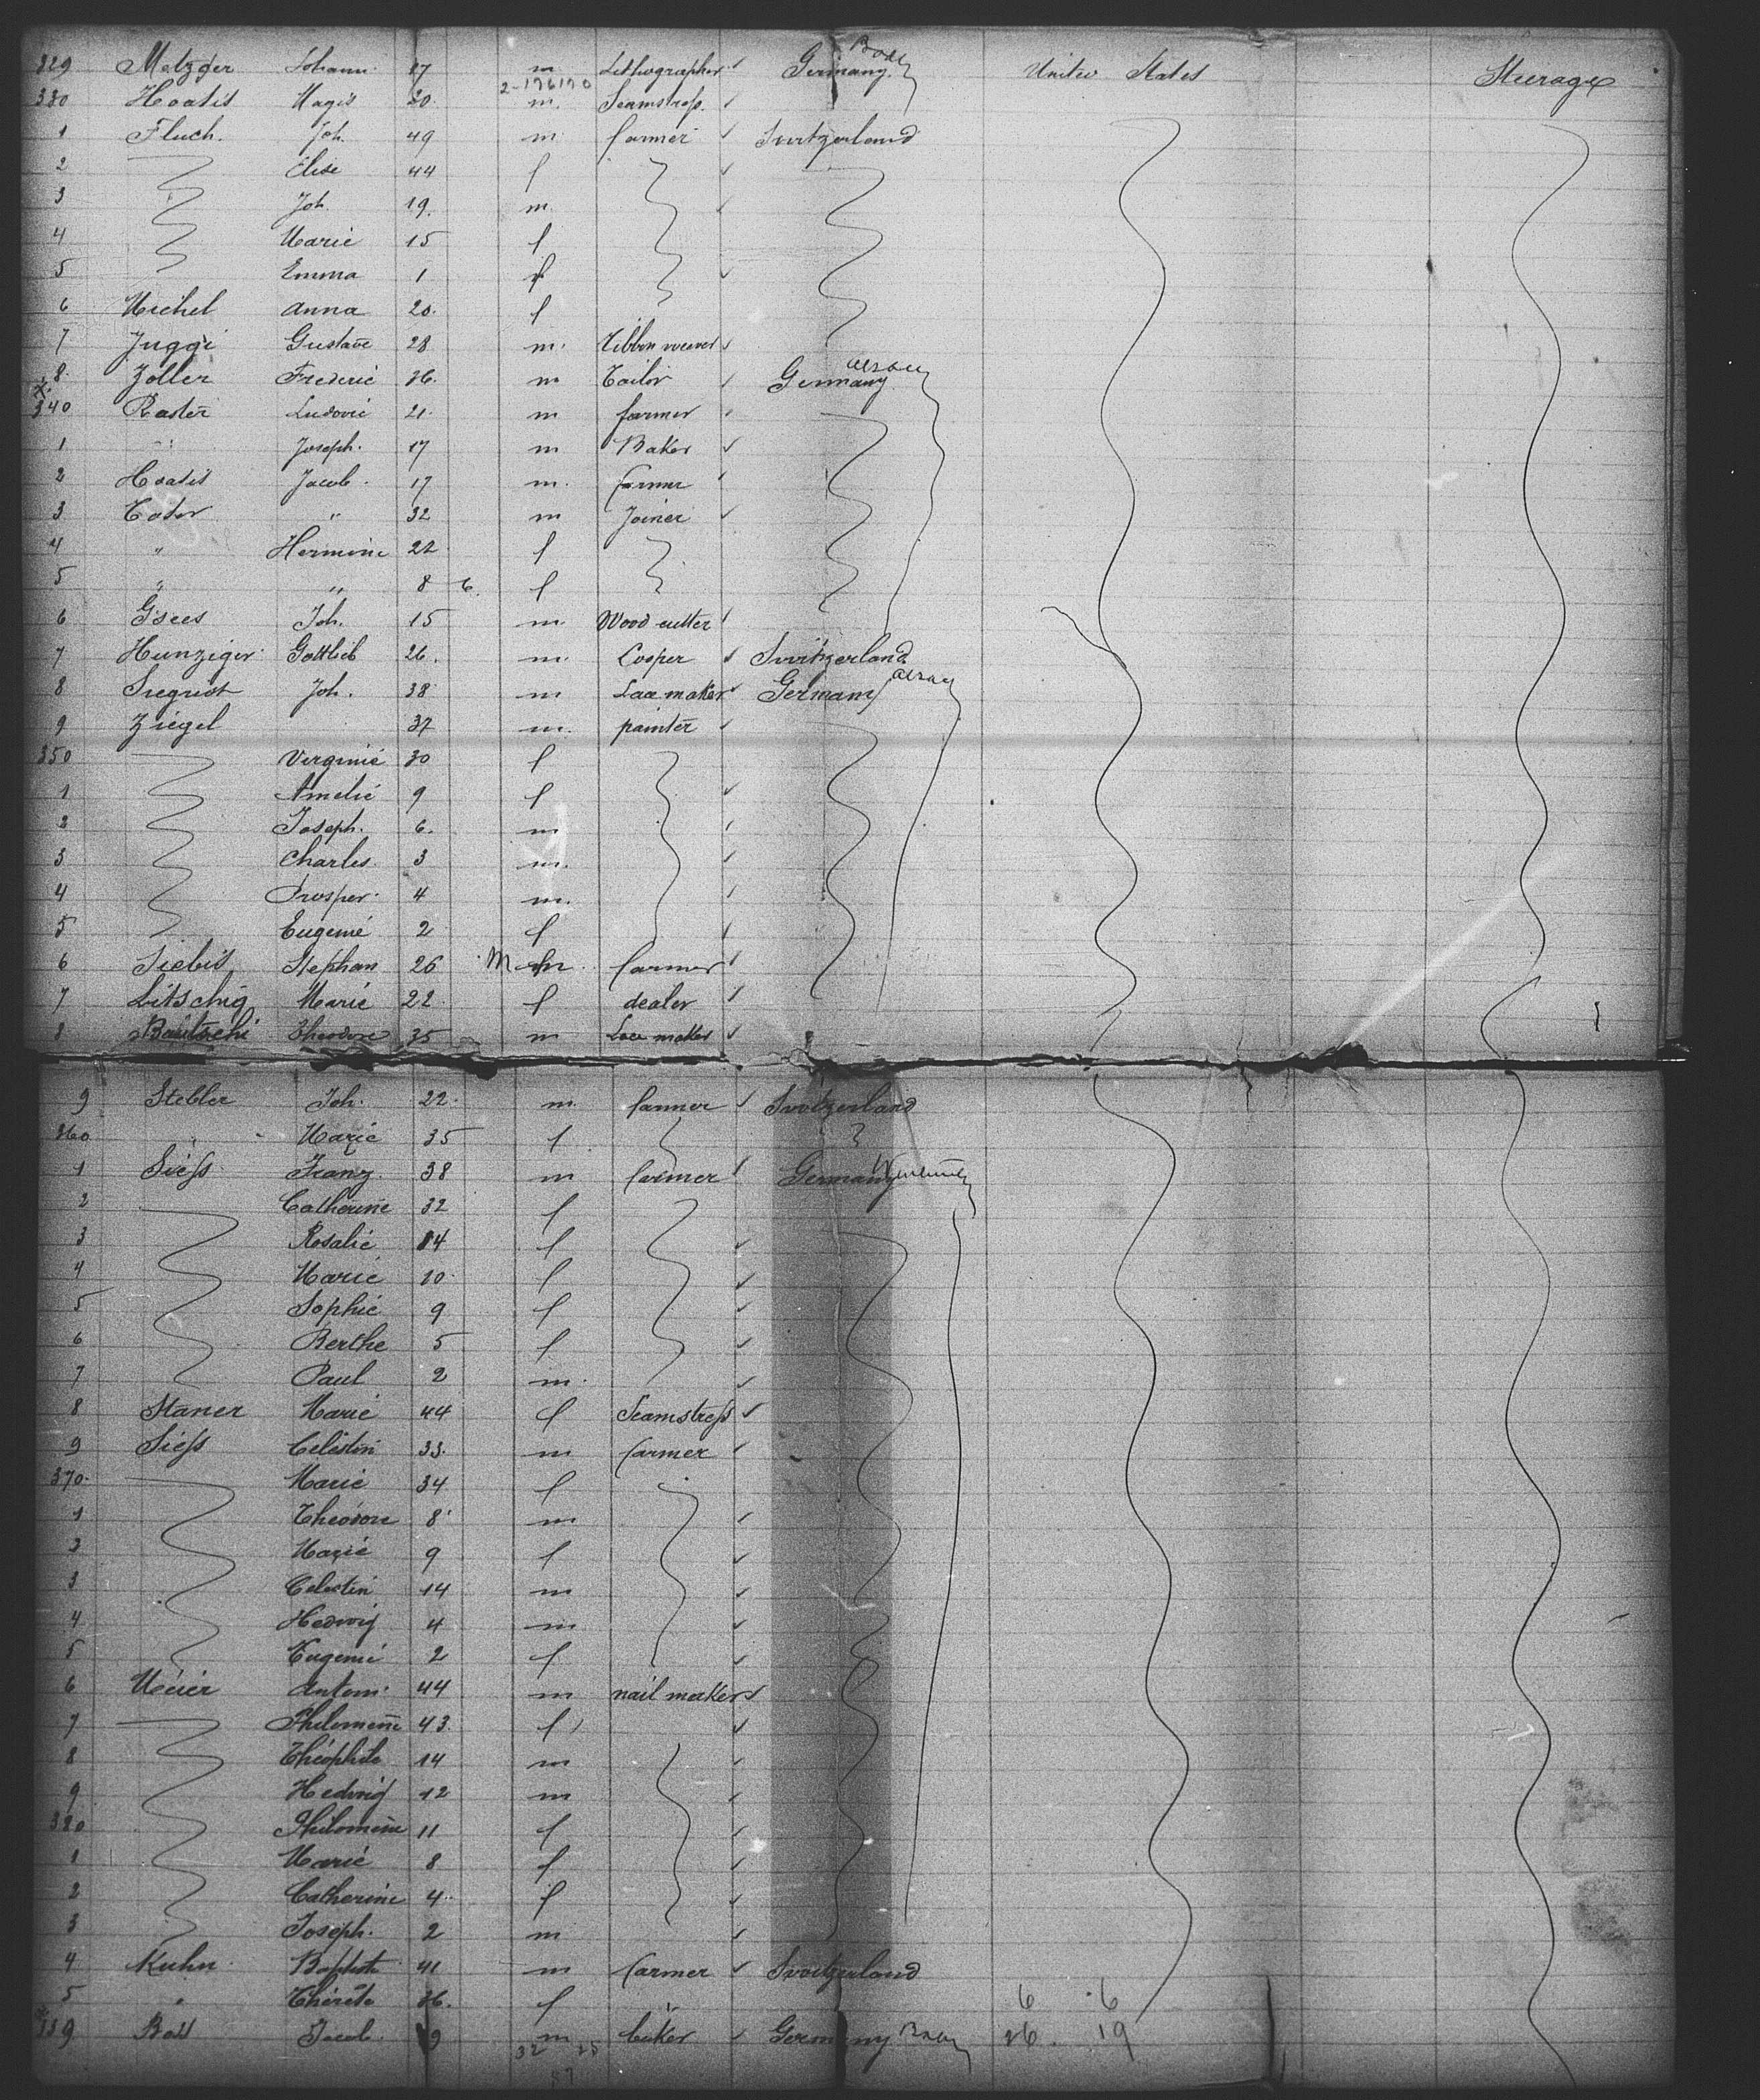 329 Metzger Johann 27 m Lithographer Germany Baden United States Steerage
2-176170
330 Hoatis Magis 20 m. Seamstress.
1 Fluch. Joh. 49 m farmer Switzerland
2 Elise 44 f
3 Joh. 19. m.
4 Marie 15 f
5 Emma 1 f
6 Michel Anna 20. f
7 Juggi Gustave 28 m. Ribbon weaver
8. Zoller Frederic 36. m Tailor Germany Alsace
340 Raster Ludovic 21. m farmer
1 " Joseph. 17 m Baker
2 Hoatis Jacob. 17 m. farmer
3 " 32 m Joiner
4 " Hermine 22 f
5 " " 8 6. f
6 Joh. 15 m Wood cutter
7 Hunziger Gottlieb 26. m. Cooper Switzerland
8 Siegrist Joh. 38 m Lace maker Germany Alsace
9 Ziegel 37 m. painter
350 Verginie 30 f
1 Amelie 9 f
2 Joseph. 6. m
3 Charles. 3 m.
4 Prosper 4 m.
5 Eugenie 2 f
6 Stephan 26 m farmer
7 Litschig Marie 22 f dealer
8 Bautschi Theodore 35 m Lace maker
9 Stebler Joh. 22. m. farmer Switzerland
360 " Marie 35 f
1 Siess Franz. 38 m farmer Germany
2 Catherine 32 f
3 Rosalie 14 f
4 Marie 10. f
5 Sophie 9 f
6 Berthe 5 f
7 Paul 2 m.
8 Staner Marie 44 f Seamstress
9 Siess Celestin 33. m farmer
370. Marie 34 f
1 Theodore 8 m
2 Marie 9 f
3 Celestin 14 m
4 Hedwig 4 m
5 Eugenie 2 f
6 Meier Antoni 44 m nail maker
7 Philomene 43. f
8 Theophile 14 m
9 Hedwig 12 m
380 Philomene 11 f
1 Marie 8 f
2 Catherine 4. f
3 Joseph. 2 m
4 Kuhn Baptiste 41 m farmer Switzerland
5 " Therese 36. f 6 6
Jacob 19 m baker Germany Baden 26. 19
32 25
57